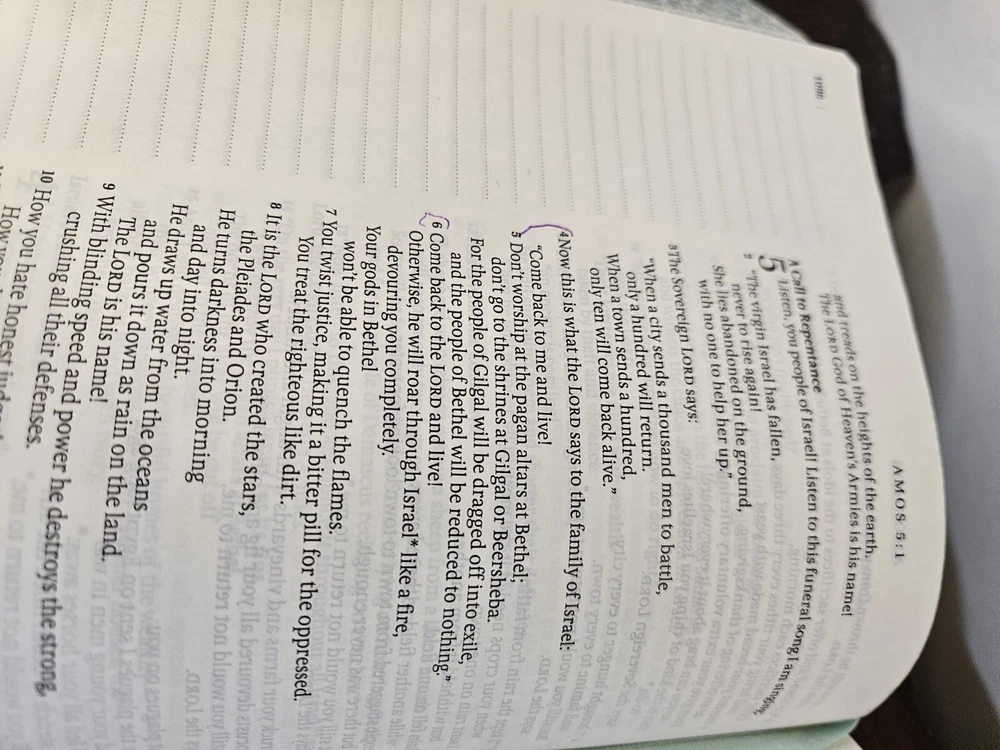 AMOS 5:1
and treads on the heights of the earth.
The LORD God of Heaven's Armies is his name!
A Call to Repentance
5 Listen, you people of Israel! Listen to this funeral song I am singing:
2 "The virgin Israel has fallen,
never to rise again!
She lies abandoned on the ground,
with no one to help her up."
3 The Sovereign LORD says:
"When a city sends a thousand men to battle,
only a hundred will return.
When a town sends a hundred,
only ten will come back alive."
4 Now this is what the LORD says to the family of Israel:
"Come back to me and live!
5 Don't worship at the pagan altars at Bethel;
don't go to the shrines at Gilgal or Beersheba.
For the people of Gilgal will be dragged off into exile,
and the people of Bethel will be reduced to nothing."
6 Come back to the LORD and live!
Otherwise, he will roar through Israel* like a fire,
devouring you completely.
Your gods in Bethel
won't be able to quench the flames.
7 You twist justice, making it a bitter pill for the oppressed.
You treat the righteous like dirt.
8 It is the LORD who created the stars,
the Pleiades and Orion.
He turns darkness into morning
and day into night.
He draws up water from the oceans
and pours it down as rain on the land.
The LORD is his name!
9 With blinding speed and power he destroys the strong,
crushing all their defenses.
10 How you hate honest judges!